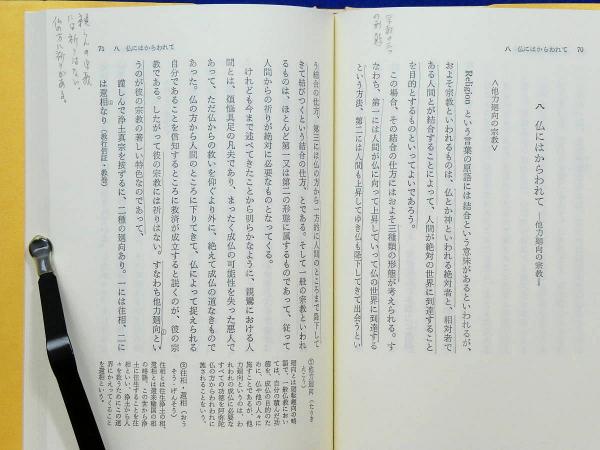 八　仏にはからわれて　70
宗教の三つ
の形態
八　仏にはからわれて　―他力廻向の宗教―
＜他力廻向の宗教＞
Religion という言葉の原語には結合という意味があるといわれるが、
およそ宗教といわれるものは、仏とか神といわれる絶対者と、相対者で
ある人間とが結合することによって、人間が絶対の世界に到達すること
を目的とするものといってよいであろう。
この場合、その結合の仕方にはおよそ三種類の形態が考えられる。す
なわち、第一には人間が仏に向って上昇していって仏の世界に到達する
という方法、第二には人間も上昇してゆき仏も陥下してきて出会うとい
71　八　仏にはからわれて
親らんの宗教
には祈りはない。
仏の方に祈りがある。
う結合の仕方、第三には仏の方から一方的に人間のところまで陥下して
きて結びつくという結合の仕方、とである。そして一般の宗教といわれ
るものは、ほとんど第一又は第二の形態に属するものであって、従って
人間からの祈りが絶対に必要なものとなってくる。
けれども今まで述べてきたことから明らかなように、親鸞における人
間とは、煩悩具足の凡夫であり、まったく成仏の可能性を失った悪人で
あって、ただ仏からの救いを仰ぐより外に、絶えて成仏の道なきもので
あった。仏の方から人間のところに下りてきて、仏によって捉えられる
自分であることを信知するところに救済が成立すると説くのが、彼の宗
教である。したがって彼の宗教には祈りはない。すなわち他力廻向とい
うのが彼の宗教の著しい特色なのであって、
謹しんで浄土真宗を按ずるに、二種の廻向あり。一には往相、二に
は還相なり（教行信証・教巻）
①他力廻向（たりき
えこう）
廻向とは廻転趣向の略
語で、一般仏教におい
ては、自分の積んだ功
徳を、成仏の目的のた
めに、仏や他の人々に
施すことであるが、他
力廻向というのは、わ
れわれの成仏に必要な
すべての功徳を阿弥陀
仏の方からわれわれに
施されることをいう。
②往相・還相（おう
そう・げんそう）
往相とは往生浄土の相、
還相とは還来穢国の相
の略語。この世から浄
土に往生することを往
相といい、浄土から人
々を救うためにこの迷
界にかえってくること
を還相という。